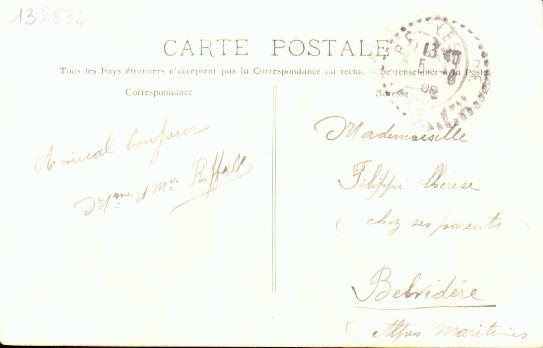 132834
CARTE POSTALE
Tous les Pays étrangers n'acceptent pas la Correspondance au recto. — Se renseigner à la Poste
Correspondance
Adresse
Amical bonjour
Mme et Mr
Mademoiselle
Filippi thérèse
( chez ses parents )
Belvédère
( Alpes maritimes